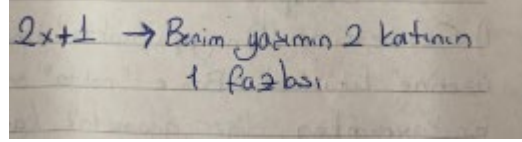 2x+1 → Benim yaşımın 2 katının
1 fazlası